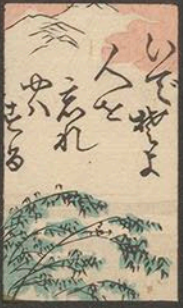 いでそよ
人を
忘れ
やは
する